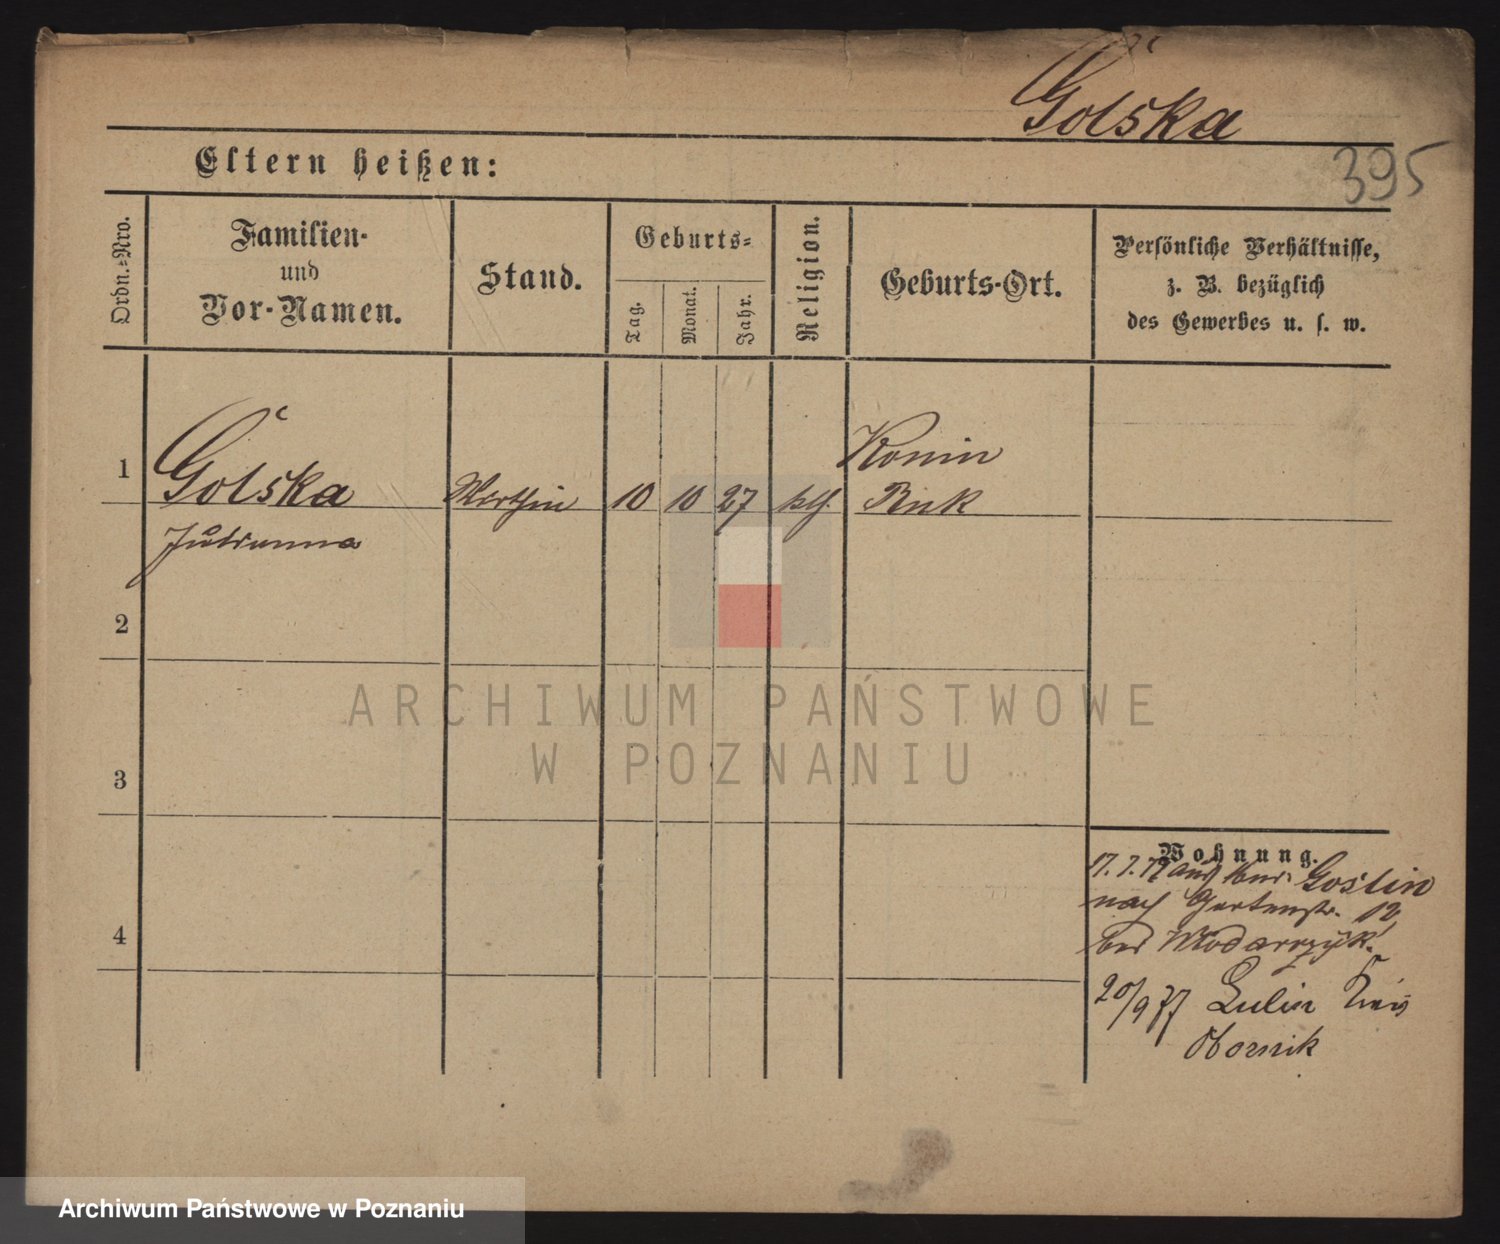 Golska
395
Eltern heißen:
Ordn.-Nro.
Familien-
und
Vor-Namen.
Stand.
Geburts-
Tag.
Monat.
Jahr.
Religion.
Geburts-Ort.
Persönliche Verhältnisse,
z. B. bezüglich
des Gewerbes u. s. w.
1
Golska
Julianna
Wirthin
10
10
27
kth.
Konin
Buk
2
3
4
Wohnung.
17. 7. 77 aus Goslin
nach Gartenstr. 12
bei
20/9 77 Lulin Kreis
Obornik
ARCHIWUM PAŃSTWOWE
W POZNANIU
Archiwum Państwowe w Poznaniu